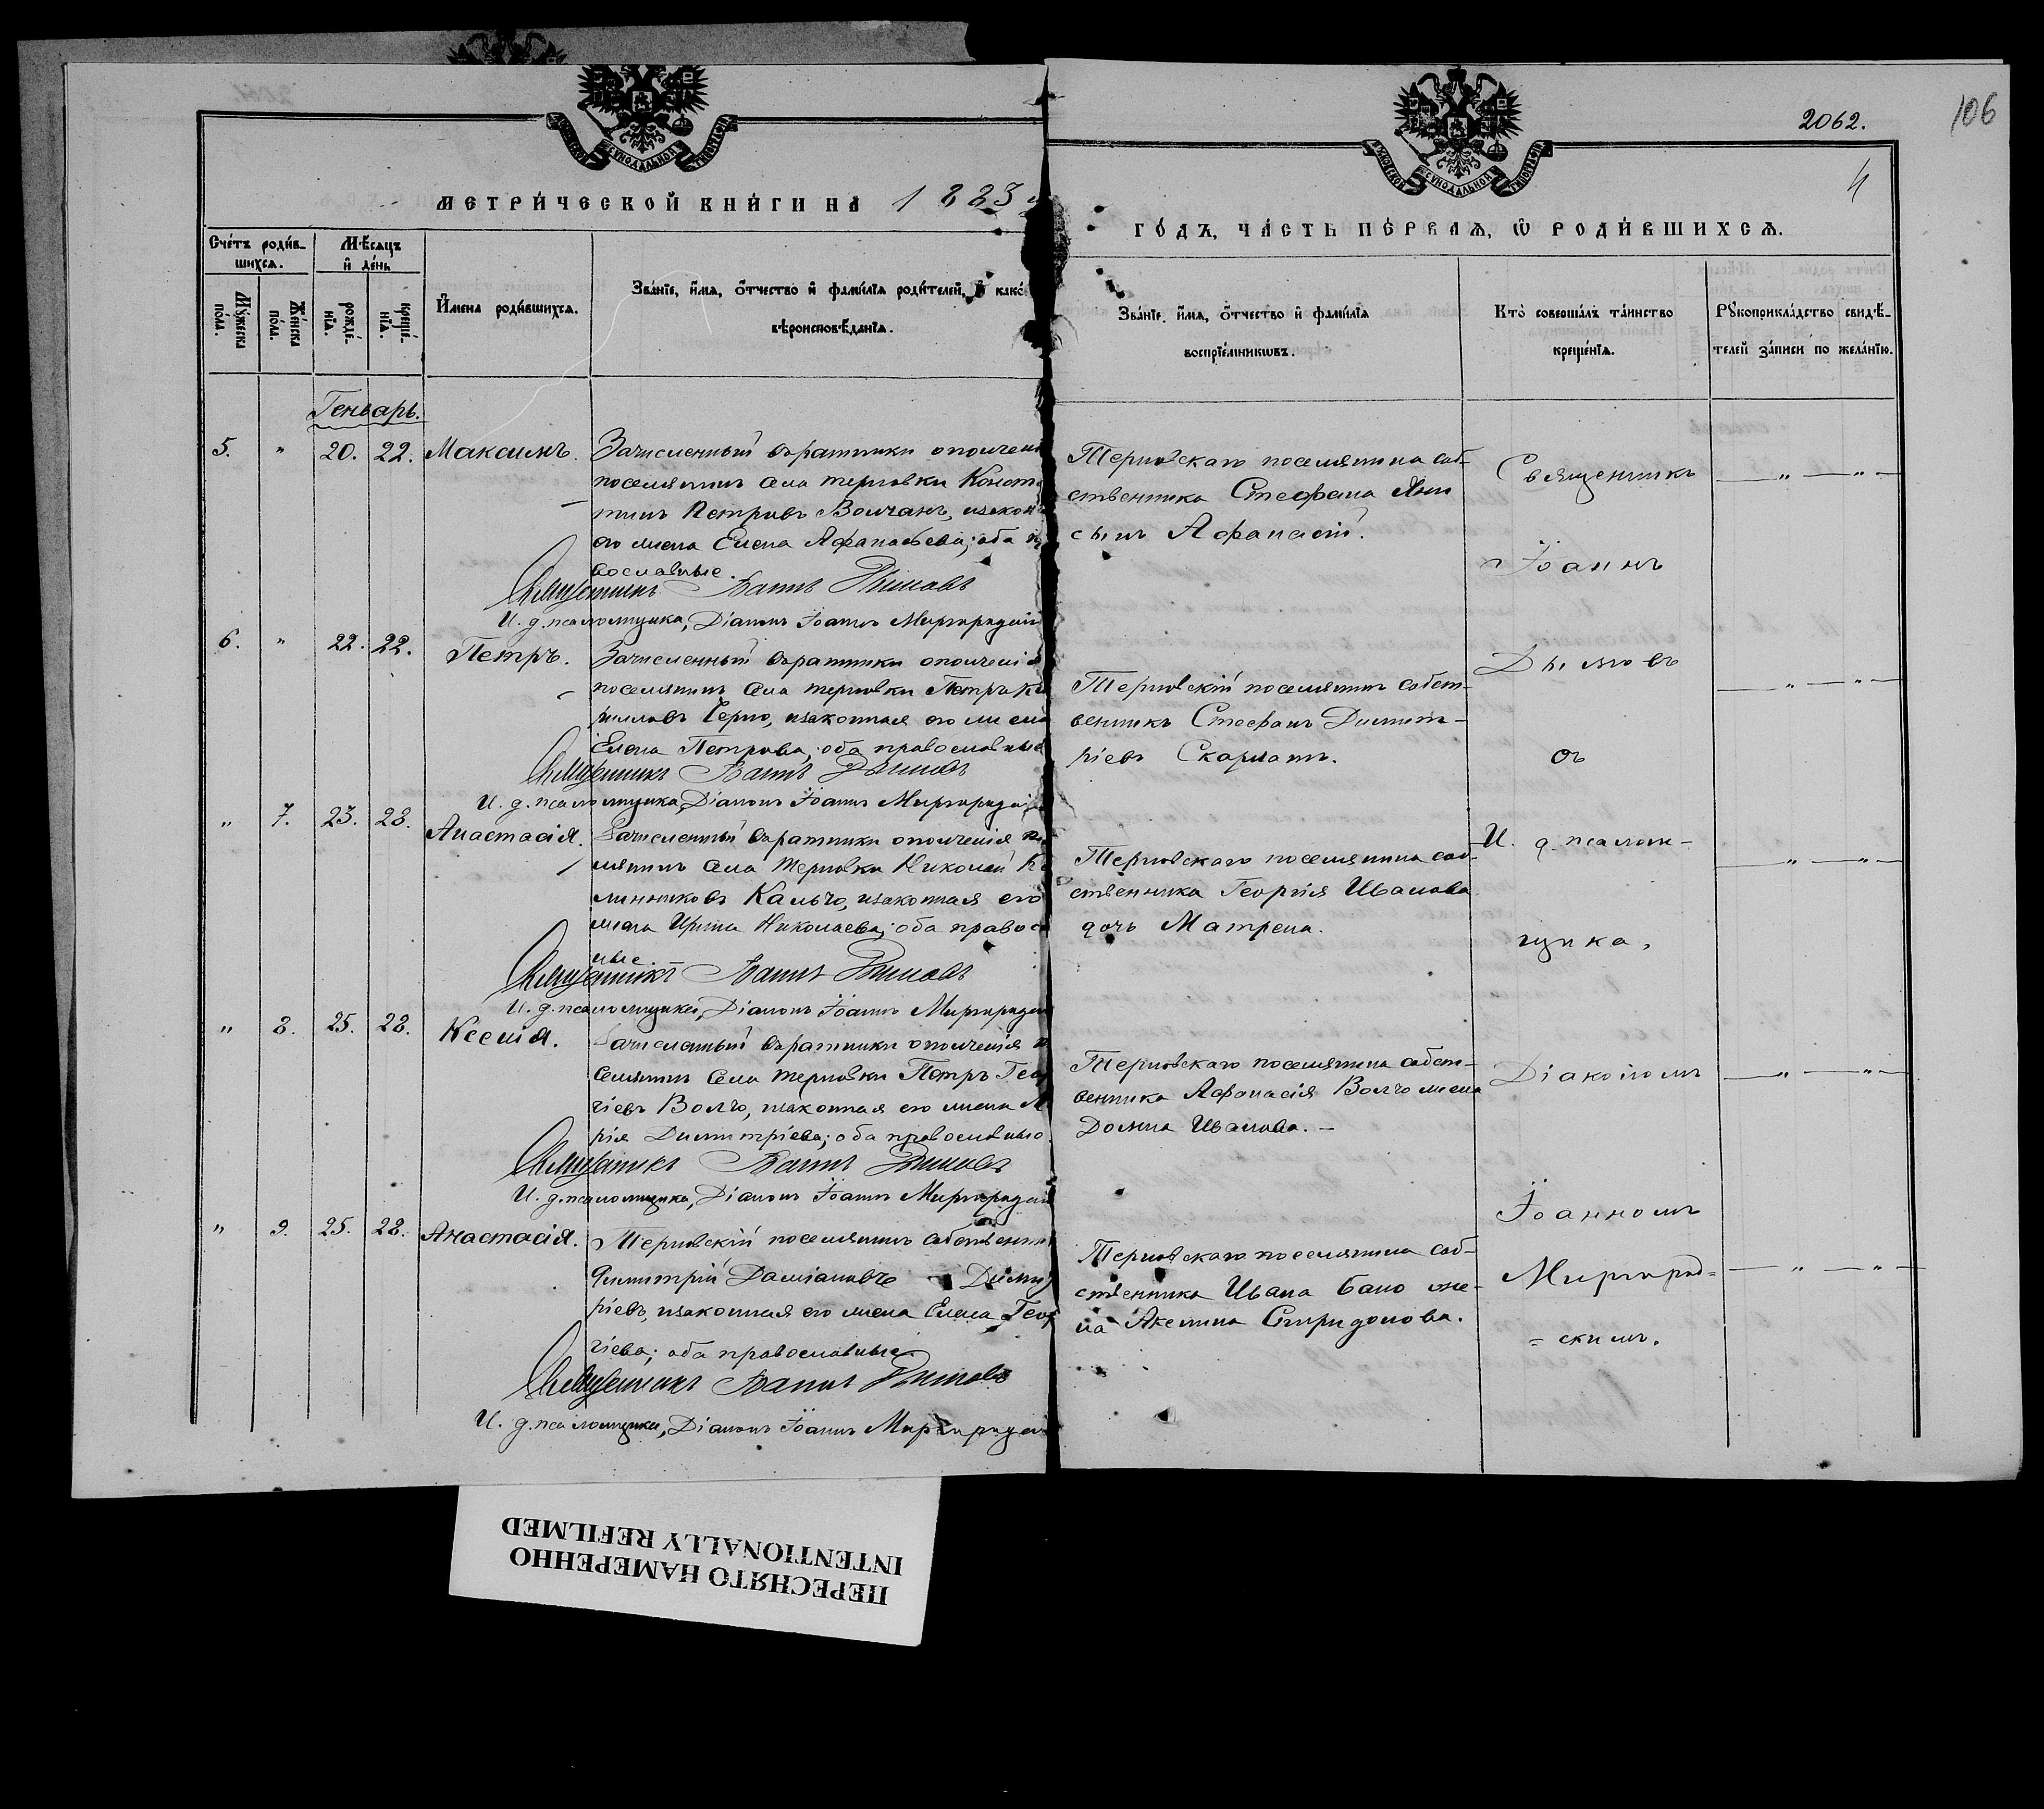 2062.
106
4
СѴНОДАЛЬНОЙ
СѴНОДАЛЬНОЙ
МЕТРИ́ЧЕСКОЙ КНИ́ГИ НА 1883
ГО́ДЪ, ЧА́СТЬ ПЕ́РВАЯ, Ѿ РОДИ́ВШИХСЯ.
Сче́тъ роди́в-
шихся.
Мѣ́сяцъ
и҆ де́нь
Му́жеска
по́ла.
Же́нска
по́ла.
рожде́-
нїѧ.
креще́-
нїѧ.
И҆мена роди́вшихся.
Зва́нїе, и҆́мя, ѻ҆́тчество и҆ фами́лїѧ роди́телей, и҆ како
вѣроисповѣ́данїѧ.
Зва́нїе, и҆́мя, ѻ҆́тчество и҆ фами́лїѧ
воспрїе́мникѡвъ.
Кто̀ соверша́лъ та́инство
креще́нїѧ.
Рꙋкоприкла́дство свидѣ́-
телей за́писи по жела́нїю.
Генварь.
5. " 20. 22. Максимъ.
Зачисленный въ ратники ополчен
поселянинъ села терновки Конст
тинъ Петровъ Волчанъ, изакон
его жена Елена Афанасьева; оба п
вославные.
Священникъ Іоаннъ Дымовъ
И. д. псаломщика, Діаконъ Іоаннъ Миргородскій
Терновскаго поселянина соб-
ственника Стефана Яни
сынъ Афанасій.
6. " 22. 22. Петръ.
Зачисленный въ ратники ополченія
поселянинъ села терновки Петръ Ки
рилловъ Черно, изаконная его жена
Елена Петрова; оба православные
Священникъ Іоаннъ Дымовъ
И. д. псаломщика, Діаконъ Іоаннъ Миргородскій
Терновскій поселянинъ собст-
венникъ Стефанъ Димит-
ріевъ Скарлатъ.
" 7. 23. 28. Анастасія.
Зачисленный въ ратники ополченія, по
лянинъ села терновки Николай
линниковъ Кальчо, изаконная его
жена Ирина Николаева; оба правос
ные.
Священникъ Іоаннъ Дымовъ
И. д. псаломщика, Діаконъ Іоаннъ Миргородск
Терновскаго поселянина соб-
ственника Георгія Иванова
дочь Матрена.
" 8. 25. 28. Ксенія.
Зачисленный въ ратники ополченія п
селянинъ села терновки Петръ Геор
гіевъ Волчо, изаконная его жена М
рія Димитріева; оба православные
Священникъ Іоаннъ Дымовъ
И. д. псаломщика, Діаконъ Іоаннъ Миргородск
Терновскаго поселянина собст-
венника Афанасія Волчо жена
Домна Иванова. –
" 9. 25. 28. Анастасія.
Терновскій поселянинъ собственни
Димитрій Даміановъ Димит
ріевъ, изаконная его жена Елена Геор
гіева; оба православные
Священникъ Іоаннъ Дымовъ
И. д. псаломщика, Діаконъ Іоаннъ Миргородск
Терновскаго поселянина соб-
ственника Ивана Бано же-
на Акелина Спиридонова.
Священникъ
Іоаннъ
Дымовъ
съ
И. д. псалом-
щика,
Діакономъ
Іоанномъ
Миргород=
= скимъ.
ПЕРЕСНЯТО НАМЕРЕННО
INTENTIONALLY REFILMED